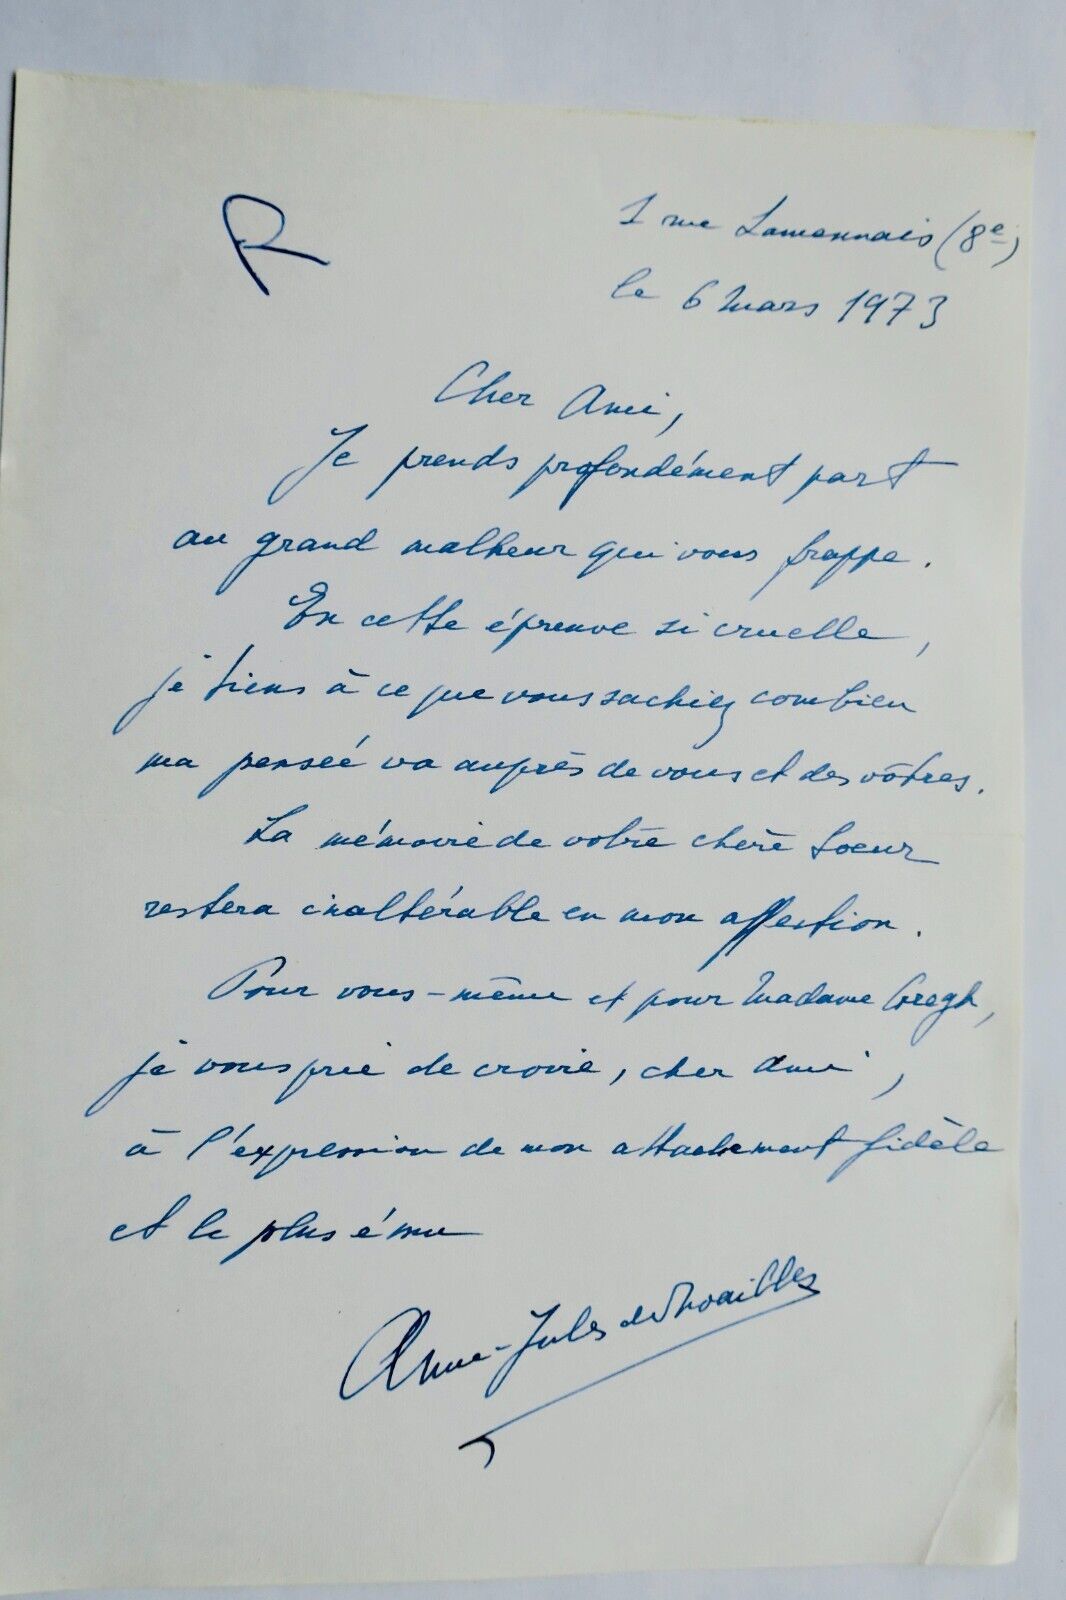 R
1 rue Lamennais (8e)
le 6 mars 1973
Cher Ami,
Je prends profondément part
au grand malheur qui vous frappe.
En cette épreuve si cruelle,
je tiens à ce que vous sachiez combien
ma pensée va auprès de vous et des vôtres.
La mémoire de votre chère Soeur
restera inaltérable en mon affection.
Pour vous-même et pour Madame Gregh,
je vous prie de croire, cher Ami,
à l'expression de mon attachement fidèle
et le plus ému
Anne-Jules de Noailles